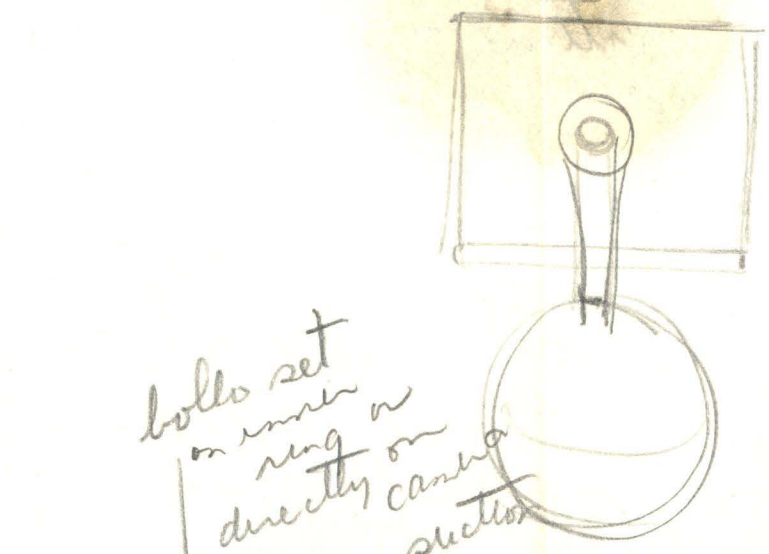 bolts set
on inner
ring or
directly on
camera
section